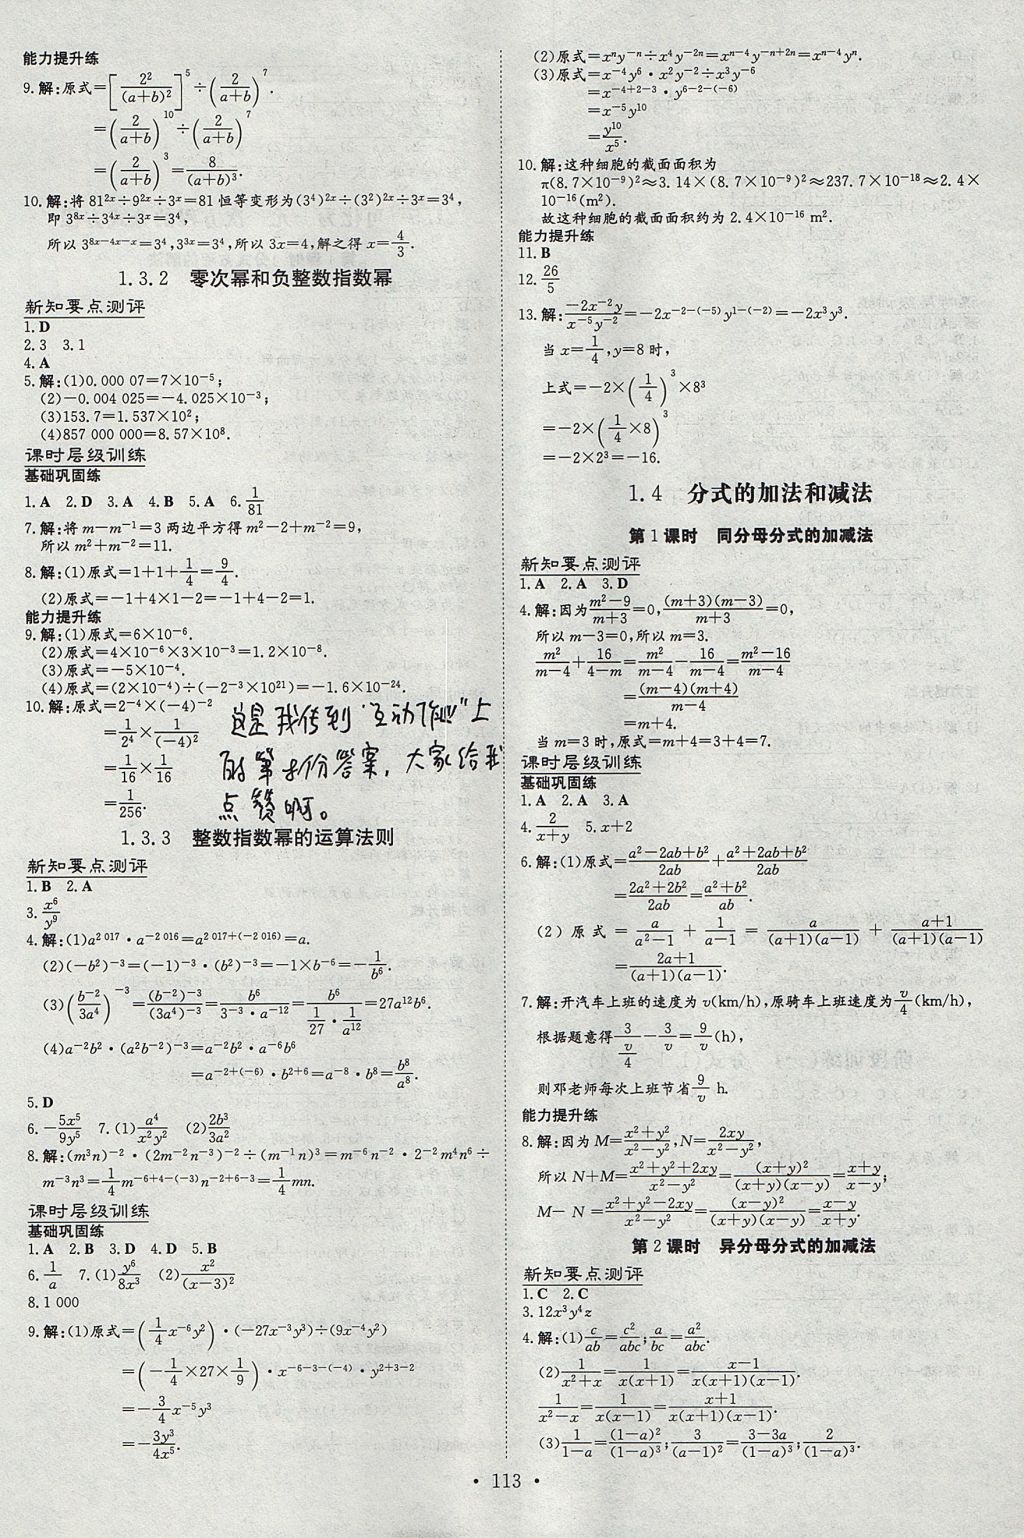 能力提升练
9.解:原式=[2²/(a+b)²]⁵÷(2/(a+b))⁷.
=(2/(a+b))¹⁰÷(2/(a+b))⁷
=(2/(a+b))³=8/(a+b)³.
10.解:将81²ˣ÷9²ˣ÷3ˣ=81恒等变形为(3⁴)²ˣ÷(3²)²ˣ÷3ˣ=3⁴,
即3⁸ˣ÷3⁴ˣ÷3ˣ=3⁴,
所以3⁸ˣ⁻⁴ˣ⁻ˣ=3⁴,3³ˣ=3⁴,所以3x=4,解之得x=4/3.
1.3.2 零次幂和负整数指数幂
新知要点测评
1.D
2.3 3.1
4.A
5.解:(1)0.000 07=7×10⁻⁵;
(2)-0.004 025=-4.025×10⁻³;
(3)153.7=1.537×10²;
(4)857 000 000=8.57×10⁸.
课时层级训练
基础巩固练
1.A 2.D 3.A 4.B 5.A 6.1/81
7.解:将m-m⁻¹=3两边平方得m²-2+m⁻²=9,
所以m²+m⁻²=11.
8.解:(1)原式=1+1+1/4=9/4.
(2)原式=-1+4×1-2=-1+4-2=1.
能力提升练
9.解:(1)原式=6×10⁻⁶.
(2)原式=4×10⁻⁶×3×10⁻³=1.2×10⁻⁸.
(3)原式=-5×10⁻⁴.
(4)原式=(2×10⁻⁴)÷(-2⁻³×10²¹)=-1.6×10⁻²⁴.
10.解:原式=2⁻⁴×(-4)⁻²
=1/2⁴×1/(-4)²
=1/16×1/16
=1/256.
这是我传到"互动作业"上
的第8份答案,大家给我
点赞啊。
1.3.3 整数指数幂的运算法则
新知要点测评
1.B 2.A
3.x⁶/y⁹
4.解:(1)a²⁰¹⁷·a⁻²⁰¹⁶=a²⁰¹⁷⁺⁽⁻²⁰¹⁶⁾=a.
(2)(-b²)⁻³=(-1)⁻³·(b²)⁻³=-1×b⁻⁶=-1/b⁶.
(3)(b⁻²/3a⁴)⁻³=(b⁻²)⁻³/(3a⁴)⁻³=b⁶/(3⁻³·a⁻¹²)=b⁶/(1/27·1/a¹²)=27a¹²b⁶.
(4)a⁻²b²·(a²b⁻²)⁻³=a⁻²b²·a⁻⁶b⁶
=a⁻²⁺⁽⁻⁶⁾·b²⁺⁶=a⁻⁸·b⁸=b⁸/a⁸.
5.D
6.-5x⁵/9y⁵ 7.(1)a⁴/x²y² (2)2b³/3a²
8.解:(m³n)⁻²·(2m⁻²n⁻³)⁻²÷(m⁻¹n)³=m⁻⁶n⁻²·2⁻²m⁴n⁶÷
m⁻³n³=1/4m⁻⁶⁺⁴⁻⁽⁻³⁾n⁻²⁺⁶⁻³=1/4mn.
课时层级训练
基础巩固练
1.A 2.B 3.D 4.D 5.B
6.1/a 7.(1)y⁶/8x³ (2)x²/(x-3)²
8.1 000
9.解:(1)原式=(1/4x⁻⁶y²)·(-27x⁻³y³)÷(9x⁻⁴y²)
=(-1/4×27×1/9)·x⁻⁶⁻³⁻⁽⁻⁴⁾·y²⁺³⁻²
=-3/4x⁻⁵y³
=-3y³/4x⁵.
(2)原式=xⁿy⁻ⁿ÷x⁴y⁻²ⁿ=xⁿ⁻⁴y⁻ⁿ⁺²ⁿ=xⁿ⁻⁴yⁿ.
(3)原式=x⁻⁴y⁶·x²y⁻²÷x³y⁻⁶
=x⁻⁴⁺²⁻³·y⁶⁻²⁻⁽⁻⁶⁾
=x⁻⁵y¹⁰
=y¹⁰/x⁵.
10.解:这种细胞的截面面积为
π(8.7×10⁻⁹)²≈3.14×(8.7×10⁻⁹)²≈237.7×10⁻¹⁸≈2.4×
10⁻¹⁶(m²).
故这种细胞的截面面积约为2.4×10⁻¹⁶ m².
能力提升练
11.B
12.26/5
13.解:-2x⁻²y/x⁻⁵y⁻²=-2x⁻²⁻⁽⁻⁵⁾y¹⁻⁽⁻²⁾=-2x³y³.
当x=1/4,y=8时,
上式=-2×(1/4)³×8³
=-2×(1/4×8)³
=-2×2³=-16.
1.4 分式的加法和减法
第1课时 同分母分式的加减法
新知要点测评
1.A 2.A 3.D
4.解:因为(m²-9)/(m+3)=0,(m+3)(m-3)/(m+3)=0,
所以m-3=0,所以m=3.
m²/(m-4)+16/(4-m)=m²/(m-4)-16/(m-4)=(m²-16)/(m-4)
=(m-4)(m+4)/(m-4)
=m+4.
当m=3时,原式=m+4=3+4=7.
课时层级训练
基础巩固练
1.A 2.A 3.A
4.2/(x+y) 5.x+2
6.解:(1)原式=(a²-2ab+b²)/2ab+(a²+2ab+b²)/2ab
=(2a²+2b²)/2ab=(a²+b²)/ab.
(2)原式=a/(a²-1)+1/(a-1)=a/(a+1)(a-1)+(a+1)/(a+1)(a-1)
=(2a+1)/(a+1)(a-1).
7.解:开汽车上班的速度为v(km/h),原骑车上班速度为v/4(km/h),
根据题意得3/(v/4)-3/v=9/v(h),
则邓老师每次上班节省9/v h.
能力提升练
8.解:因为M=(x²+y²)/(x²-y²),N=2xy/(x²-y²),
所以N+M=(x²+y²+2xy)/(x²-y²)=(x+y)²/(x+y)(x-y)=(x+y)/(x-y);
M-N=(x²+y²-2xy)/(x²-y²)=(x-y)²/(x+y)(x-y)=(x-y)/(x+y).
第2课时 异分母分式的加减法
新知要点测评
1.C 2.C
3.12x³y⁴z
4.解:(1)c/ab=c²/abc;a/bc=a²/abc.
(2)1/(x²+x)=1/x(x+1)=(x-1)/x(x+1)(x-1).
1/(x²-x)=1/x(x-1)=(x+1)/x(x+1)(x-1).
(3)1/(1-a)=(1-a)²/(1-a)³;3/(a-1)²=(3-3a)/(1-a)³;2/(1-a)³.
·113·